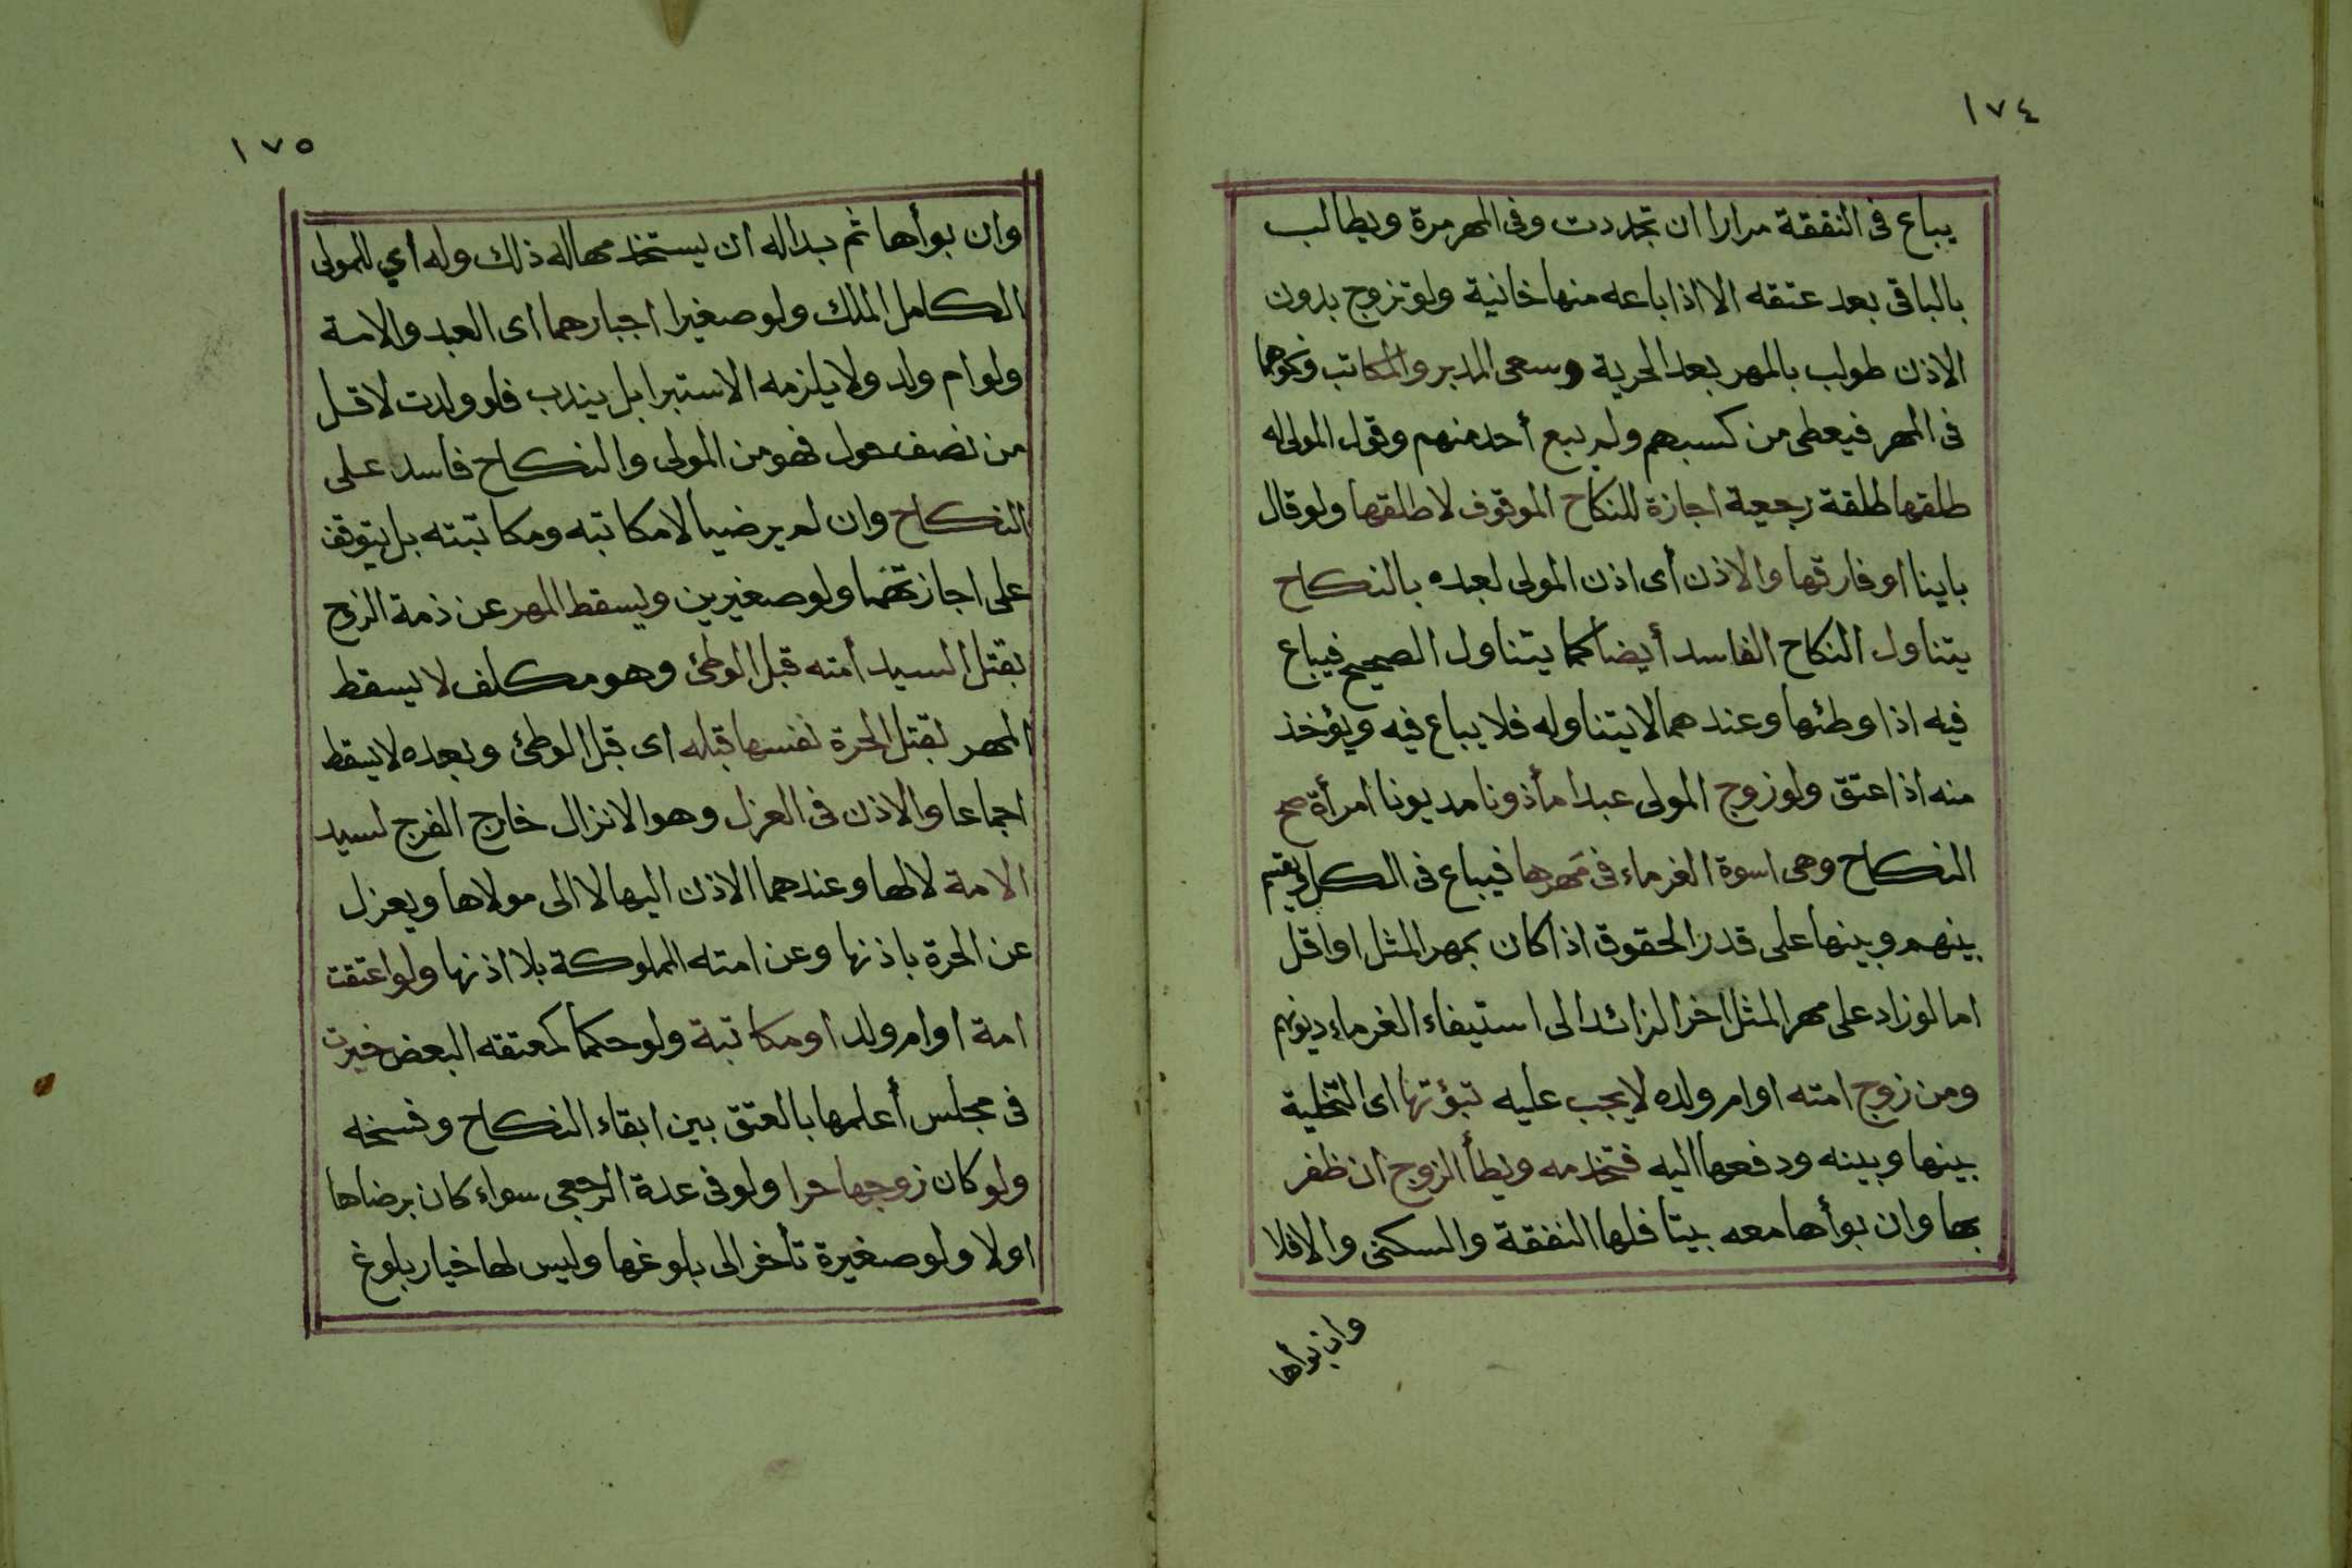 ١٧٤
يباع فى النفقة مرارا ان تجددت وفى المهر مرة ويطالب
بالباقى بعد عتقه الا اذا باعه منها خانية ولو تزوج بدون
الاذن طولب بالمهر بعد الحرية وسعى المدبر والمكاتب ونحوهما
فى المهر فيعطى من كسبهم ولم يبع أحد منهم وقول المولى له
طلقها طلقة رجعية اجازة للنكاح الموقوف لا طلقها ولو قال
باينا او فارقها والاذن أى اذن المولى لعبده بالنكاح
يتناول النكاح الفاسد أيضا كما يتناول الصحيح فيباع
فيه اذا وطئها وعندهما لا يتناوله فلا يباع فيه ويؤخذ
منه اذا عتق ولو زوج المولى عبدا مأذونا مديونا امرأة صح
النكاح وهى اسوة الغرماء فى مهرها فيباع فى الكل ويقسم
بينهم وبينها على قدر الحقوق اذا كان بمهر المثل او اقل
اما لو زاد على مهر المثل اخر الزائد الى استيفاء الغرماء ديونهم
ومن زوج امته او ام ولده لا يجب عليه تبؤتها اى التخلية
بينها وبينه ودفعها اليه فتخدمه ويطأ الزوج ان ظفر
بها وان بوأها معه بيتا فلها النفقة والسكنى والا فلا
وان بوأها
١٧٥
وان بوأها ثم بدا له ان يستخدمها له ذلك وله اي للمولى
الكامل الملك ولو صغيرا اجبارهما اى العبد والامة
ولو ام ولد ولا يلزمه الاستبرا بل يندب فلو ولدت لاقل
من نصف حول فهو من المولى والنكاح فاسد على
النكاح وان لم يرضيا لا مكاتبه ومكاتبته بل يتوقف
على اجازتهما ولو صغيرين ويسقط المهر عن ذمة الزوج
بقتل السيد أمته قبل الوطئ وهو مكلف لا يسقط
المهر بقتل الحرة نفسها قبله اى قبل الوطئ وبعده لا يسقط
اجماعا والاذن فى العزل وهو الانزال خارج الفرج لسيد
الامة لا لها وعندهما الاذن اليها لا الى مولاها ويعزل
عن الحرة باذنها وعن امته المملوكة بلا اذنها ولو اعتقت
امة او ام ولد او مكاتبة ولو حكما كمعتقه البعض خيرت
فى مجلس أعلمها بالعتق بين ابقاء النكاح وفسخه
ولو كان زوجها حرا ولو فى عدة الرجعى سواء كان برضاها
اولا ولو صغيرة تأخر الى بلوغها وليس لها خيار بلوغ